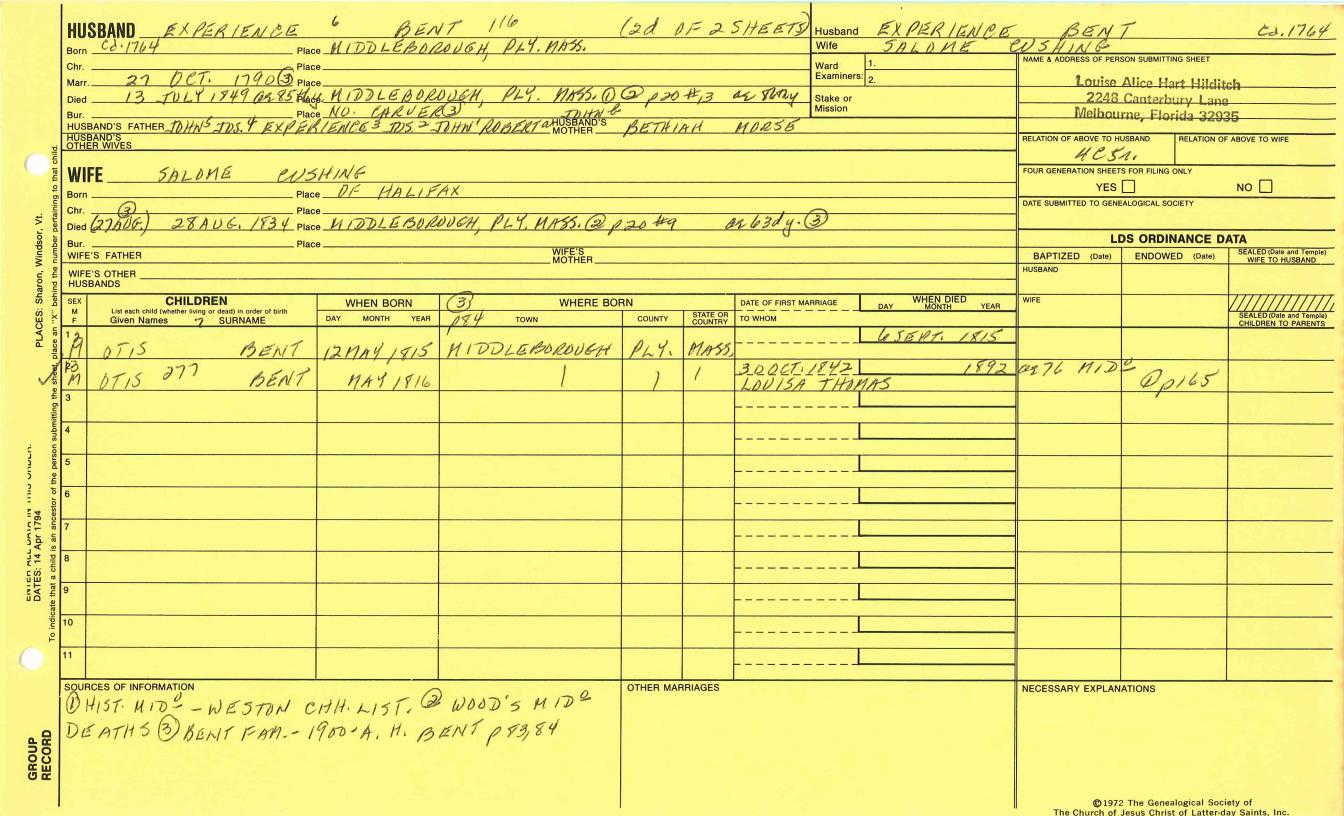 HUSBAND EXPERIENCE 6 BENT 116 (2d OF 2 SHEETS)
Born Cd.1764 Place MIDDLEBOROUGH, PLY. MASS.
Chr. Place
Marr. 27 OCT. 1790 ③ Place
Died 13 JULY 1849 ag 85 Place MIDDLEBOROUGH, PLY. MASS. ① ② p20 #13
Bur. Place NO. CARVER ③
HUSBAND'S FATHER JOHN⁵ JOS.⁴ EXPERIENCE³ JOS.² JOHN¹ ROBERT JOHN HUSBAND'S MOTHER BETHIAH MORSE
HUSBAND'S OTHER WIVES
WIFE SALOME CUSHING
Born Place OF HALIFAX
Chr. Place
③
Died (27 AUG.) 28 AUG. 1834 Place MIDDLEBOROUGH, PLY. MASS. ② p20 #9 ag 63dy. ③
Bur. Place
WIFE'S FATHER WIFE'S MOTHER
WIFE'S OTHER HUSBANDS
Husband EXPERIENCE BENT Cd.1764
Wife SALOME CUSHING
Ward Examiners: 1.
2.
Stake or Mission
NAME & ADDRESS OF PERSON SUBMITTING SHEET
Louise Alice Hart Hilditch
2248 Canterbury Lane
Melbourne, Florida 32935
RELATION OF ABOVE TO HUSBAND RELATION OF ABOVE TO WIFE
FOUR GENERATION SHEETS FOR FILING ONLY
YES NO
DATE SUBMITTED TO GENEALOGICAL SOCIETY
LDS ORDINANCE DATA
BAPTIZED (Date) ENDOWED (Date) SEALED (Date and Temple) WIFE TO HUSBAND
HUSBAND
WIFE
SEALED (Date and Temple) CHILDREN TO PARENTS
SEX M F
CHILDREN
List each child (whether living or dead) in order of birth
Given Names 7 SURNAME
WHEN BORN
DAY MONTH YEAR
③ p84 WHERE BORN
TOWN COUNTY STATE OR COUNTRY
DATE OF FIRST MARRIAGE
TO WHOM
WHEN DIED
DAY MONTH YEAR
1 M OTIS BENT 12 MAY 1815 MIDDLEBOROUGH PLY. MASS. 6 SEPT. 1815
M OTIS 277 BENT MAY 1816 30 OCT. 1842 1892 ag 76 MIDº
LOUISA THOMAS ① p165
3
4
5
6
7
8
9
10
11
SOURCES OF INFORMATION
① HIST. MIDº - WESTON CHH. LIST. ② WOOD'S MIDº
DEATHS ③ BENT FAM. - 1900 - A. H. BENT p 83,84
OTHER MARRIAGES
NECESSARY EXPLANATIONS
©1972 The Genealogical Society of
The Church of Jesus Christ of Latter-day Saints, Inc.
PLACES: Sharon, Windsor, Vt.
ENTER ALL DATA IN THIS ORDER:
DATES: 14 Apr 1794
To indicate that a child is an ancestor of the person submitting the sheet, place an "X" behind the number pertaining to that child.
GROUP RECORD